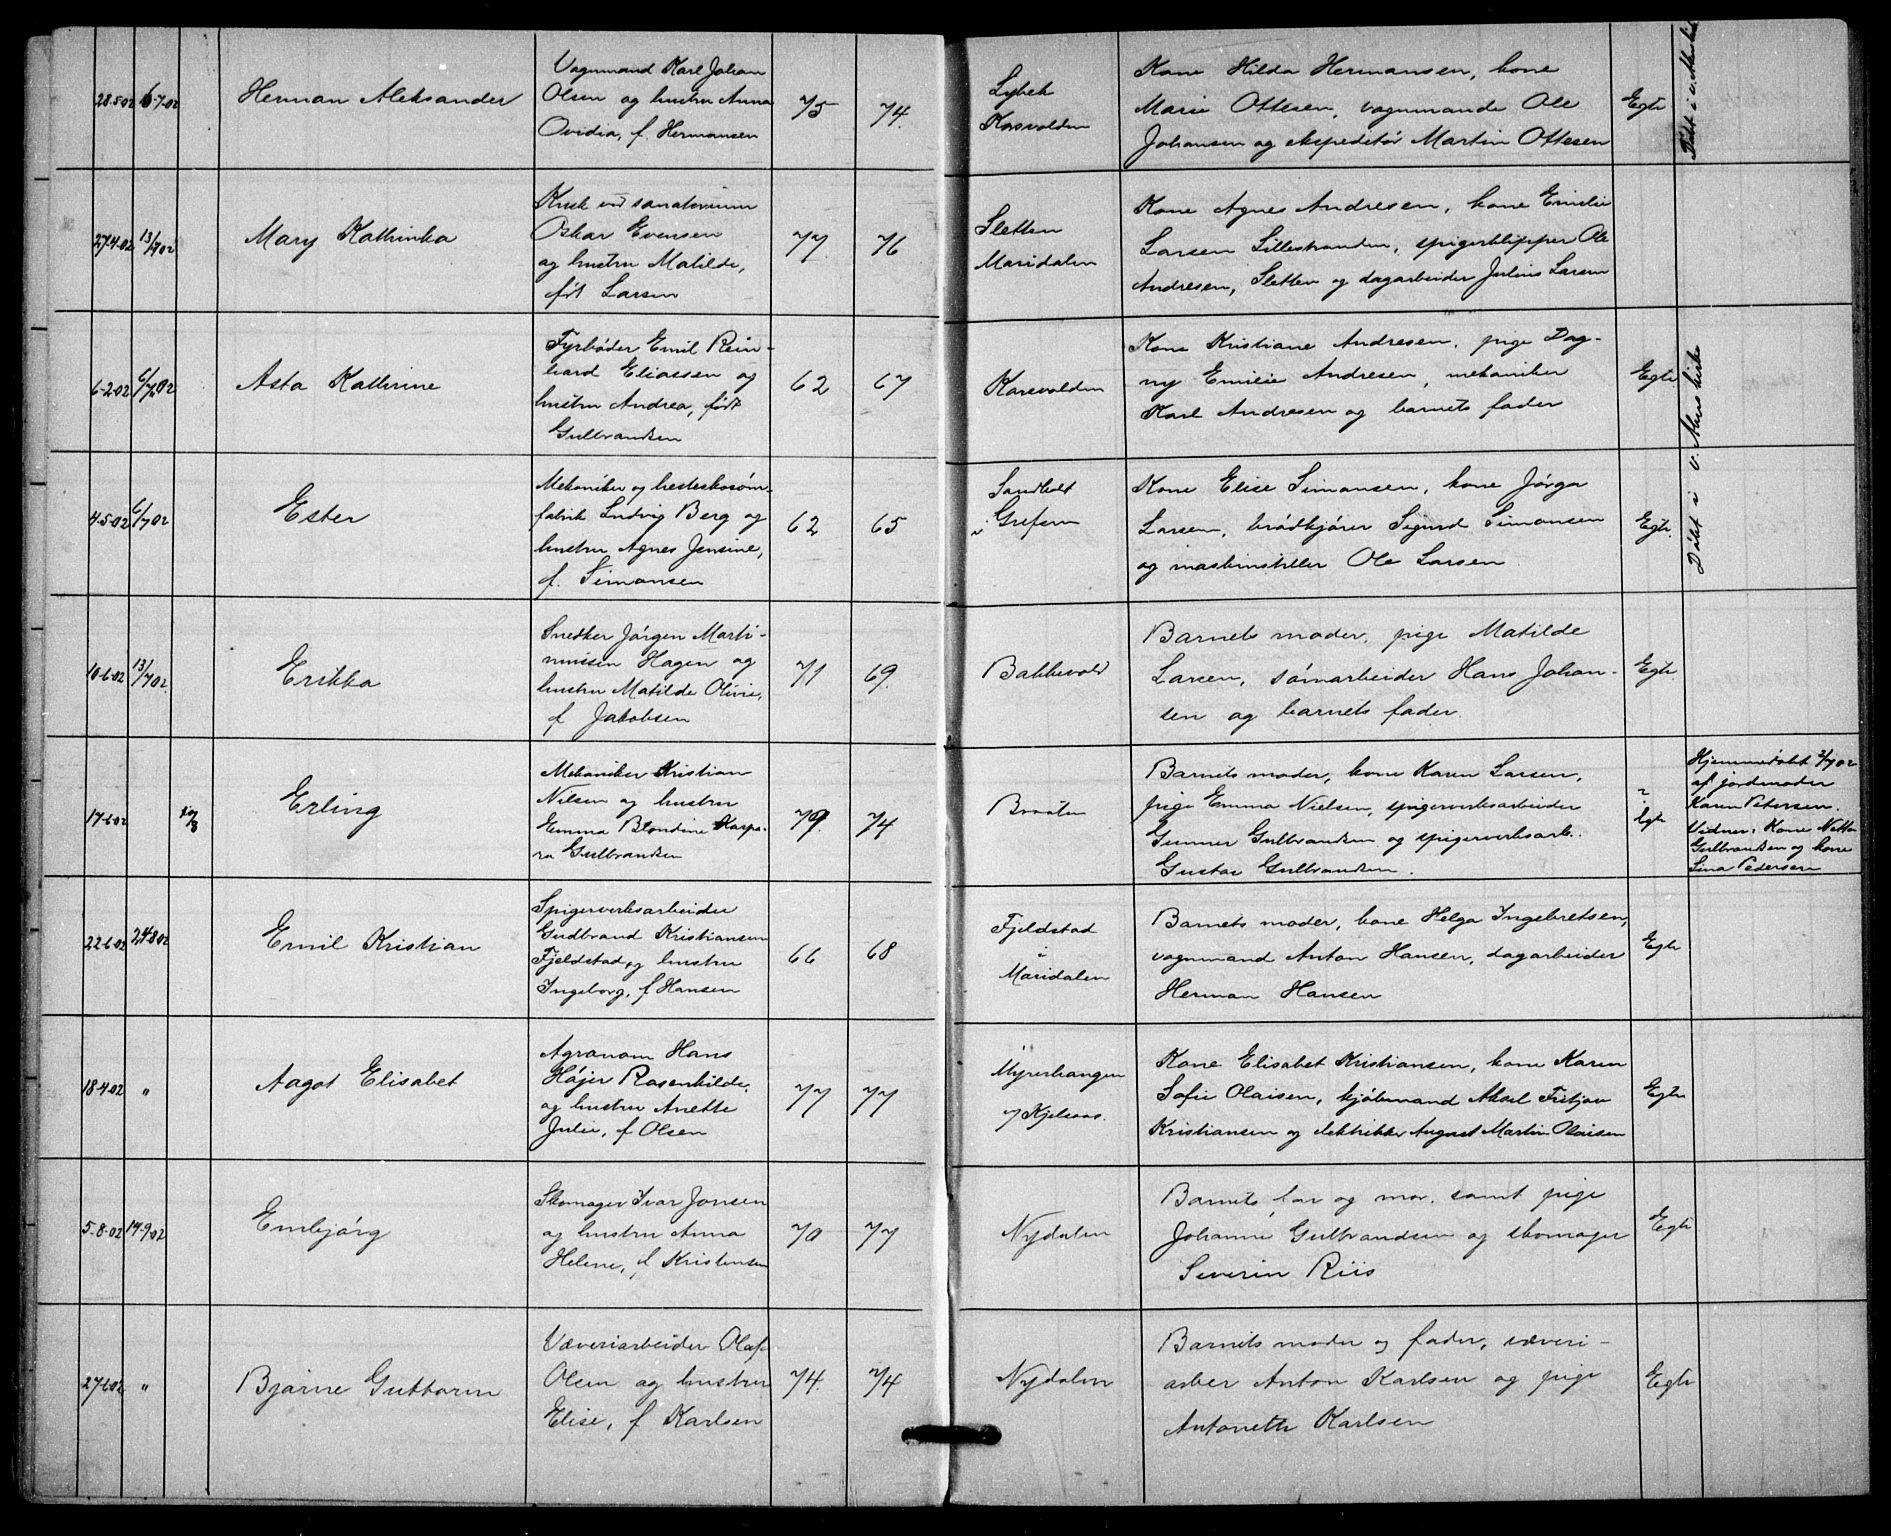 28.5.02 6.7.02
Herman Aleksander
Vognmand Karl Johan
Olsen og hustru Anna
Ovidia, f. Hermansen
75
74.
Lybek
Korsvolden
Kone Hilda Hermansen, kone
Marie Ottesen, vognmand Ole
Johansen og ekspeditør Martin Ottesen
Egte
27.4.02 13/7 02
Mary Kathinka
Kusk ved sanatorium
Oskar Evensen
og hustru Matilde,
født Larsen
77.
76
Sletten
Maridalen
Kone Agnes Andresen, kone Emilie
Larsen Lillestranden, spigerklipper Ole
Andresen, Sletten og dagarbeider Julius Larsen
6-2.02 6/7 02
Asta Kathrine
Fyrbøder Emil Rein-
hard Eliassen og
hustru Andrea, født
Gulbrandsen
62
67
Korsvolden
Kone Kristiane Andresen, pige Dag-
ny Emilie Andresen, mekaniker
Karl Andresen og barnets fader
Egte
Døbt i v. Akers kirke
4.5.02 6/7 02
Ester
Mekaniker og hesteskosøm-
fabrik Ludvig Berg og
hustru Agnes Jensine,
f. Simonsen
62
65
Sandholt
i Grefsen
Kone Elise Simonsen, kone Jørga
Larsen, brødkjører Sigurd Simonsen
og maskinstiller Ole Larsen
Egte.
10.6.02 13/7 02.
Erikka
Snedker Jørgen Marti-
nussen Hagen og
hustru Matilde Olivie,
f Jakobsen
71
69.
Bakkevold
Barnets moder, pige Matilde
Larsen, sømarbeider Hans Johan-
sen og barnets fader.
Egte.
17.6.02 10/8
Erling
Mekaniker Kristian
Nilsen og hustru
Emma Blondine Kaspa-
ra Gulbrandsen
79.
74
Braaten
Barnets moder, kone Karen Larsen,
pige Emma Nielsen, spigerverksarbeider
Gunner Gulbrandsen og spigerverksarb.
Gustav Gulbrandsen.
? Egte
Hjemmedøbt 2/7 02
af jordmoder
Karen Petersen.
Vidner: Kone Netta
Gulbrandsen og kone
Lina Pedersen
22.6.02 24.8.02
Emil Kristian
Spigerverksarbeider
Gudbrand Kristiansen
Fjeldstad, og hustru
Ingeborg, f Hansen
66
68
Fjeldstad
i
Maridalen
Barnets moder, kone Helga Ingebretsen,
vognmand Anton Hansen, dagarbeider
Herman Hansen
Egte
18.4.02 "
Aagot Elisabet
Agronom Hans
Højer Rosenkilde,
og hustru Anette
Julie, f Olsen
77
77
Myrerhaugen
v/ Kjelsaas.
Kone Elisabet Kristiansen, kone Karen
Sofie Olaisen, kjøbmand Aksel Fritjov
Kristiansen og elektriker August Martin Olaisen
Egte
5.8.02 14.9.02
Embjørg
Skomager Ivar Jonsen
og hustru Anna
Helene, f. Kristensen
70
77
Nydalen
Barnets far og mor, samt pige
Johanne Gulbrandsen og skomager
Severin Riis
Egte
27.6.02 "
Bjarne Guttorm
Væveriarbeider Olaf
Olsen og hustru
Elise, f Karlsen
74.
74
Nydalen
Barnets moder og fader, væveri-
arber Anton Karlsen og pige
Antonette Karlsen
Egte